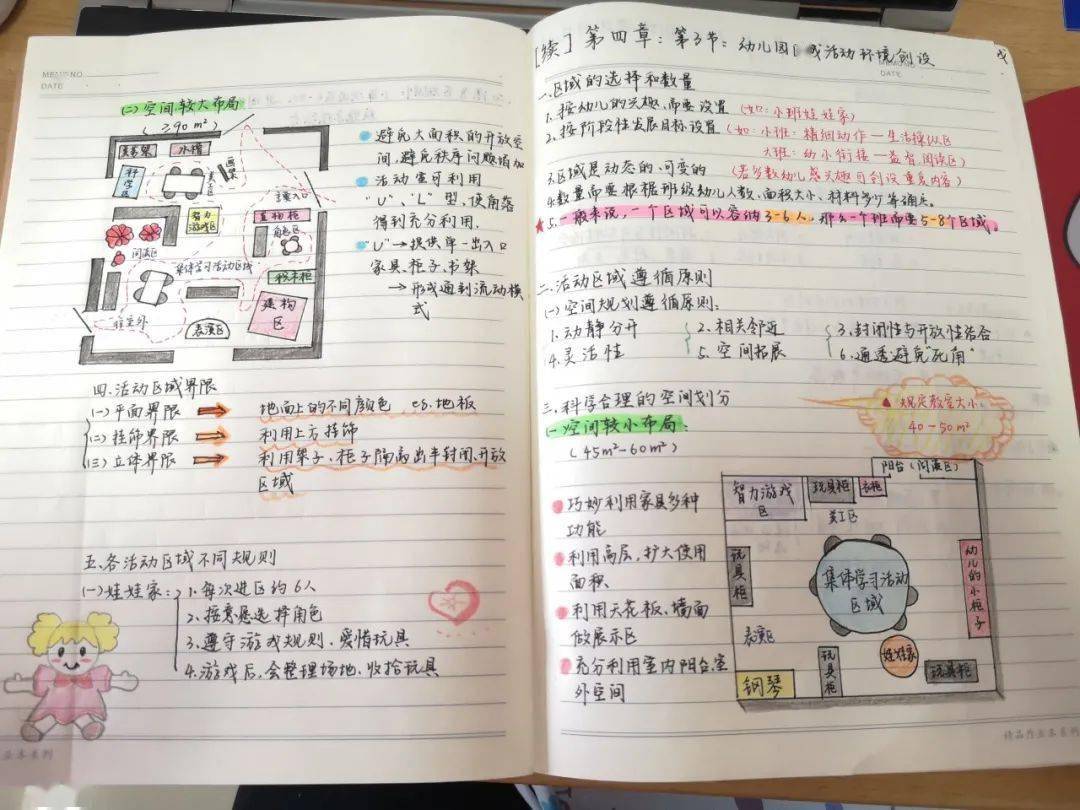 MEMO NO.
DATE
(二)空间较大布局
(≥90m²)
图书架
水槽
科学区
美工区
智力游戏区
主要入口
直物柜
角色区
阅读区
集体学习活动区域
积木柜
建构区
往室外
表演区
避免大面积的开放空
间,避免秩序问题增加
活动室可利用
"U"、"L"型,使角落
得到充分利用.
"U"→提供单一出入口
家具、柜子、书架
→形成通到流动模
式
四.活动区域界限
(一)平面界限 地面上的不同颜色 eg.地板
(二)挂饰界限 利用上方挂饰
(三)立体界限 利用架子、柜子隔离出半封闭、开放
区域
五、各活动区域不同规则
(一)娃娃家: 1.每次进区约6人
2.按意愿选择角色
3.遵守游戏规则、爱惜玩具
4.游戏后,会整理场地、收拾玩具
业本系列
[续]第四章:第3节:幼儿园 域活动环境创设
DATE
一.区域的选择和数量
1.按幼儿的兴趣、需要设置(如:小班娃娃家)
2.按阶段性发展目标设置(如:小班:精细动作—生活操纵区
大班:幼小衔接—益智、阅读区)
3.区域是动态的、可变的(若多数幼儿感兴趣可创设重复内容)
4.数量需要根据班级幼儿人数、面积大小、材料多少等确定。
★5.一般来说,一个区域可以容纳3-6人,那么一个班需要5-8个区域。
二.活动区域遵循原则
(一)空间规划遵循原则:
1.动静分开 2.相关邻近 3.封闭性与开放性结合
4.灵活性 5.空间拓展 6.通透避免"死角"
三.科学合理的空间划分
规定教室大小:
40-50m²
(一)空间较小布局:
(45m²-60m²)
巧妙利用家具多种
功能
利用高层,扩大使用
面积.
利用天花板、墙面
做展示区
充分利用室内阳台、室
外空间
阳台(阅读区)
智力游戏区
玩具柜
衣柜
美工区
玩具柜
集体学习活动
区域
幼儿的小柜子
表演区
娃娃家
钢琴
玩具柜
玩具柜
精品作业本系列